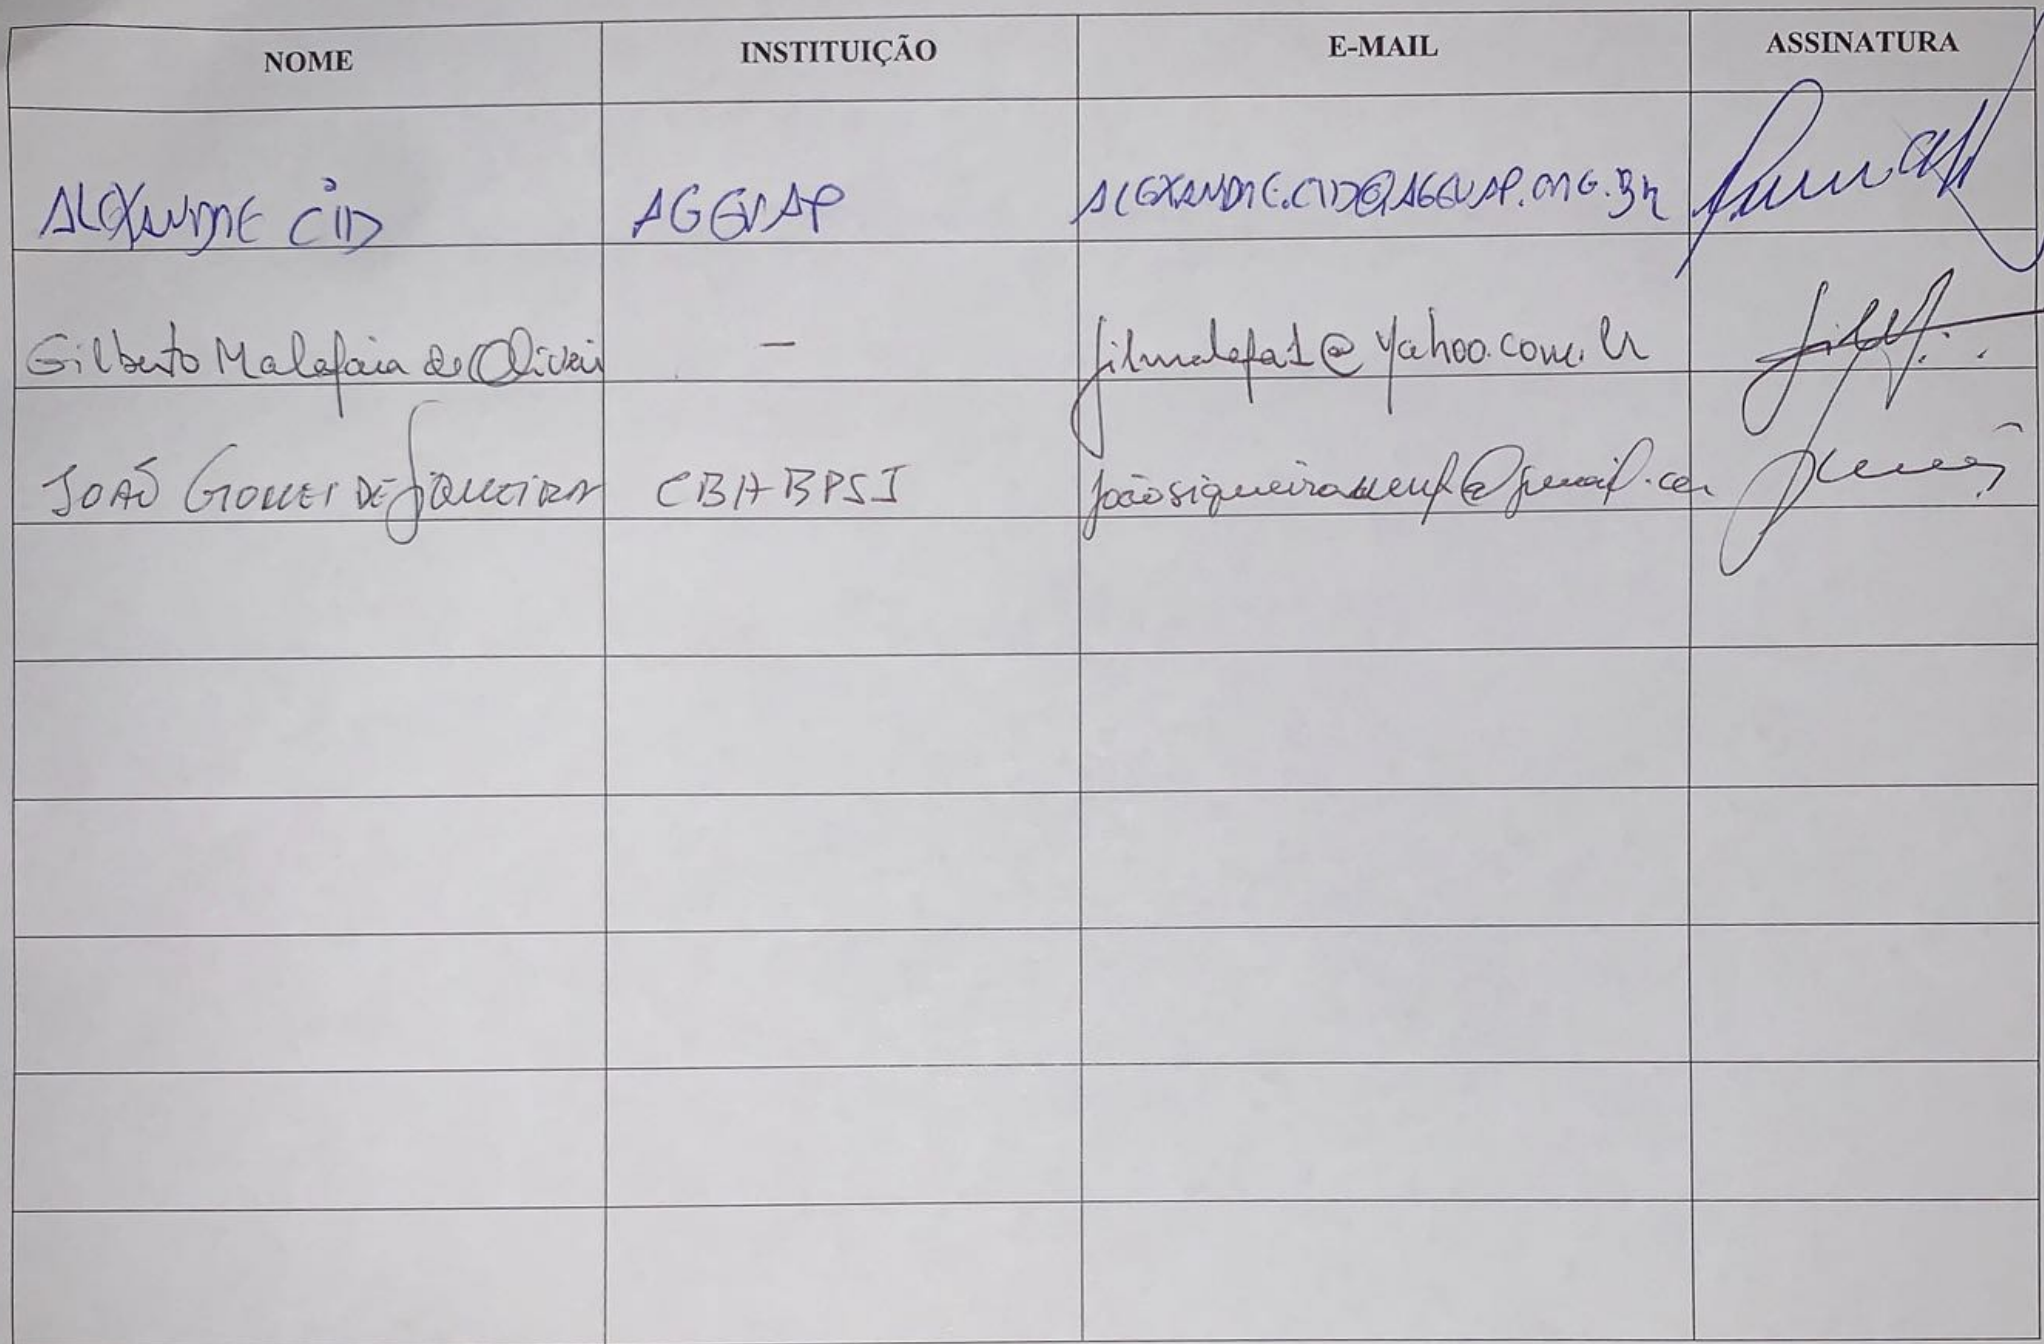 NOME INSTITUIÇÃO E-MAIL ASSINATURA
ALEXANDRE CID AGEVAP ALEXANDRE.CID@AGEVAP.ORG.BR
Gilberto Malafaia de Oliveir — gilmalafa1@yahoo.com.br
JOÃO GOMES DE SIQUEIRA CBH-BPSI